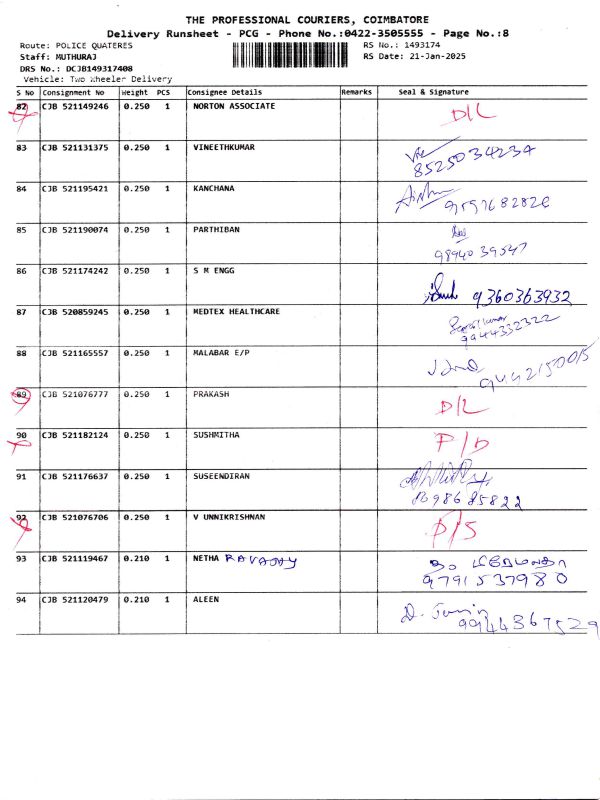 THE PROFESSIONAL COURIERS, COIMBATORE
Delivery Runsheet - PCG - Phone No.:0422-3505555 - Page No.:8
Route: POLICE QUATERES RS No.: 1493174
Staff: MUTHURAJ RS Date: 21-Jan-2025
DRS No.: DCJB149317408
Vehicle: Two Wheeler Delivery
S No Consignment No Weight PCS Consignee Details Remarks Seal & Signature
82 CJB 521149246 0.250 1 NORTON ASSOCIATE D/L
83 CJB 521131375 0.250 1 VINEETHKUMAR
8525034234
84 CJB 521195421 0.250 1 KANCHANA
85 CJB 521190074 0.250 1 PARTHIBAN
9894039547
86 CJB 521174242 0.250 1 S M ENGG 9360363932
87 CJB 520859245 0.250 1 MEDTEX HEALTHCARE
9944332322
88 CJB 521165557 0.250 1 MALABAR E/P
9442150015
89 CJB 521076777 0.250 1 PRAKASH D/L
90 CJB 521182124 0.250 1 SUSHMITHA P/D
91 CJB 521176637 0.250 1 SUSEENDIRAN
92 CJB 521076706 0.250 1 V UNNIKRISHNAN P/S
93 CJB 521119467 0.210 1 NETHA
9791537980
94 CJB 521120479 0.210 1 ALEEN
9944367529